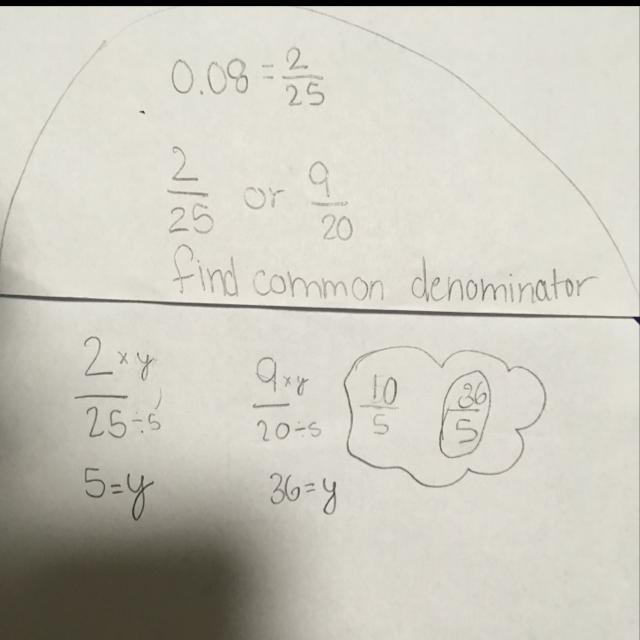 0.08 = 2/25
2/25 or 9/20
find common denominator
2 × y / 25 ÷ 5
9 × y / 20 ÷ 5
10/5 36/5
5 = y
36 = y